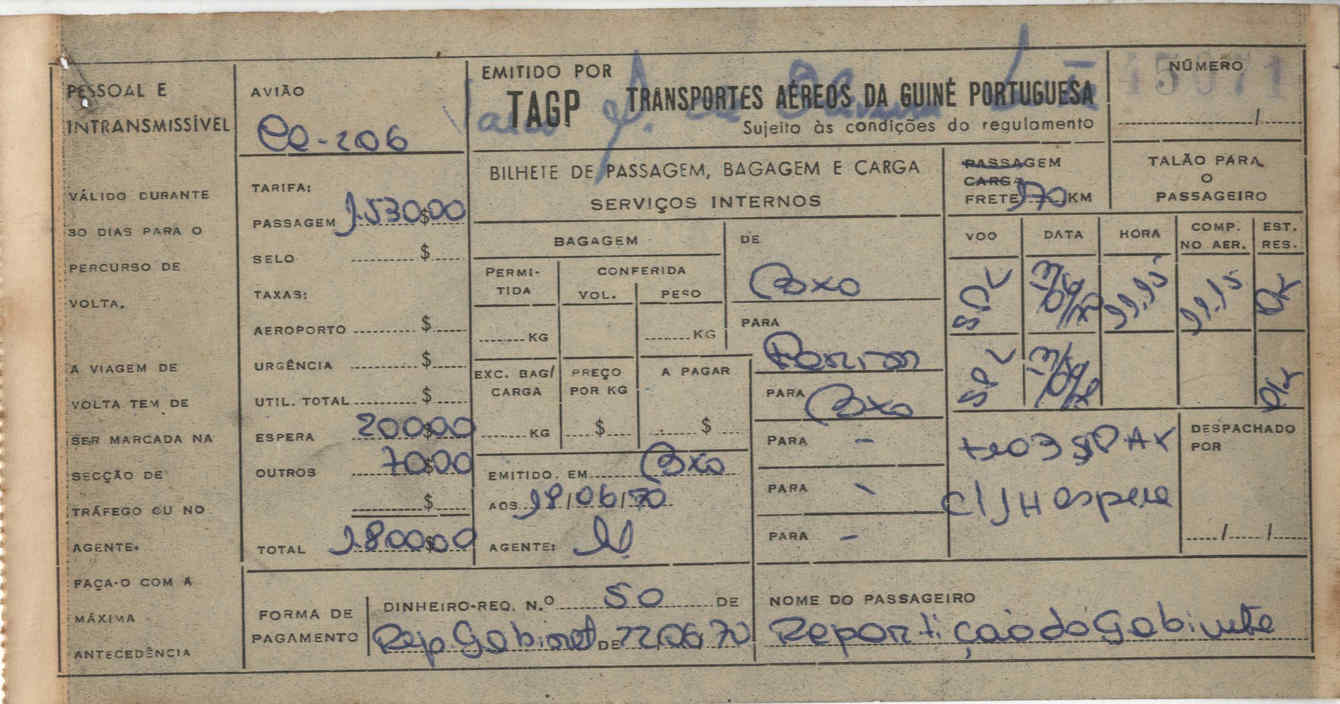 PESSOAL E
INTRANSMISSÍVEL
VÁLIDO DURANTE
30 DIAS PARA O
PERCURSO DE
VOLTA.
A VIAGEM DE
VOLTA TEM DE
SER MARCADA NA
SECÇÃO DE
TRÁFEGO OU NO
AGENTE.
FAÇA-O COM A
MÁXIMA
ANTECEDÊNCIA
AVIÃO
CE-206
TARIFA:
PASSAGEM 1.530$00
SELO $
TAXAS:
AEROPORTO $
URGÊNCIA $
UTIL. TOTAL $
ESPERA 200$00
OUTROS 70$00
$
TOTAL 1.800$00
EMITIDO POR
TAGP TRANSPORTES AÉREOS DA GUINÉ PORTUGUESA
Sujeito às condições do regulamento
NÚMERO
45071
/
BILHETE DE PASSAGEM, BAGAGEM E CARGA
SERVIÇOS INTERNOS
PASSAGEM
CARGA
FRETE 170 KM
TALÃO PARA
O
PASSAGEIRO
BAGAGEM
PERMI-
TIDA
CONFERIDA
VOL. PESO
KG KG
EXC. BAG/
CARGA
PREÇO
POR KG
A PAGAR
KG $ $
EMITIDO EM BXO
AOS 18/06/70
AGENTE:
DE
BXO
PARA
PARA BXO
PARA -
PARA -
PARA -
VOO DATA HORA COMP.
NO AER. EST.
RES.
11.15 11.15 OK
OK
c/1H espera
DESPACHADO
POR
/ /
FORMA DE
PAGAMENTO
DINHEIRO-REQ. N.º 50 DE
Rep Gabinet DE 22/06/70
NOME DO PASSAGEIRO
Repartição do Gabinete